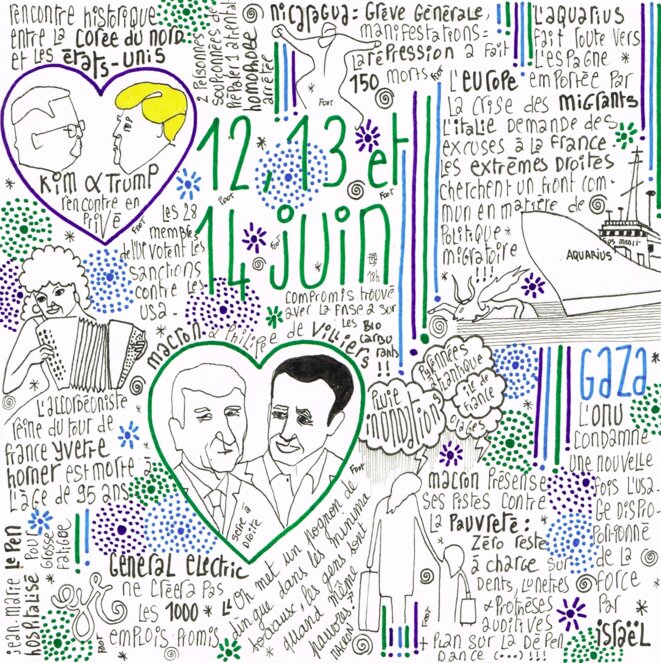 rencontre historique
entre la Corée du nord
et les états-unis
Kim & Trump
rencontre en
Privé
2 Personnes
soupçonnées de
Préparer 1 attentat
homophobe
arrêtées
nicaragua = Grève Générale,
manifestations =
la répression a fait
150 morts
l'aquarius
fait route vers
l'espagne *
l'europe emportée par
la crise des migrants
l'italie demande des
excuses à la France
les extrêmes droites
cherchent un front com-
mun en matière de
Politique
migratoire
!!!
AQUARIUS
12, 13 et
14 juin
Les 28
membres
de l'UE votent les
sanctions
contre les
USA -
compromis trouvé
avec la FNSEA sur
les Bio
carbu
rants
!!
macron & Philippe de Villiers
sortie à
Droite
L'accordéoniste
reine du tour de
France yvette
horner est morte à
l'âge de 95 ans
Pluie
inondations
Pyrénées
atlantique
île de
France
orages
Gaza
l'ONU
condamne
une nouvelle
fois l'usa-
ge dispro-
portionné
de la
force
Par
israël
macron présense
ses pistes contre
la Pauvreté :
zéro reste
à charge sur
dents, lunettes
& Prothèses
auditives
+ Plan sur la dépen
dance (...) !
Jean-marie Le Pen
hospitalisé pour
Grosse
fatigue
General electric
ne créera pas
les 1000 *
emplois promis
"On met un pognon de
dingue dans les minima
sociaux, les gens sont
quand même
pauvres"
macron